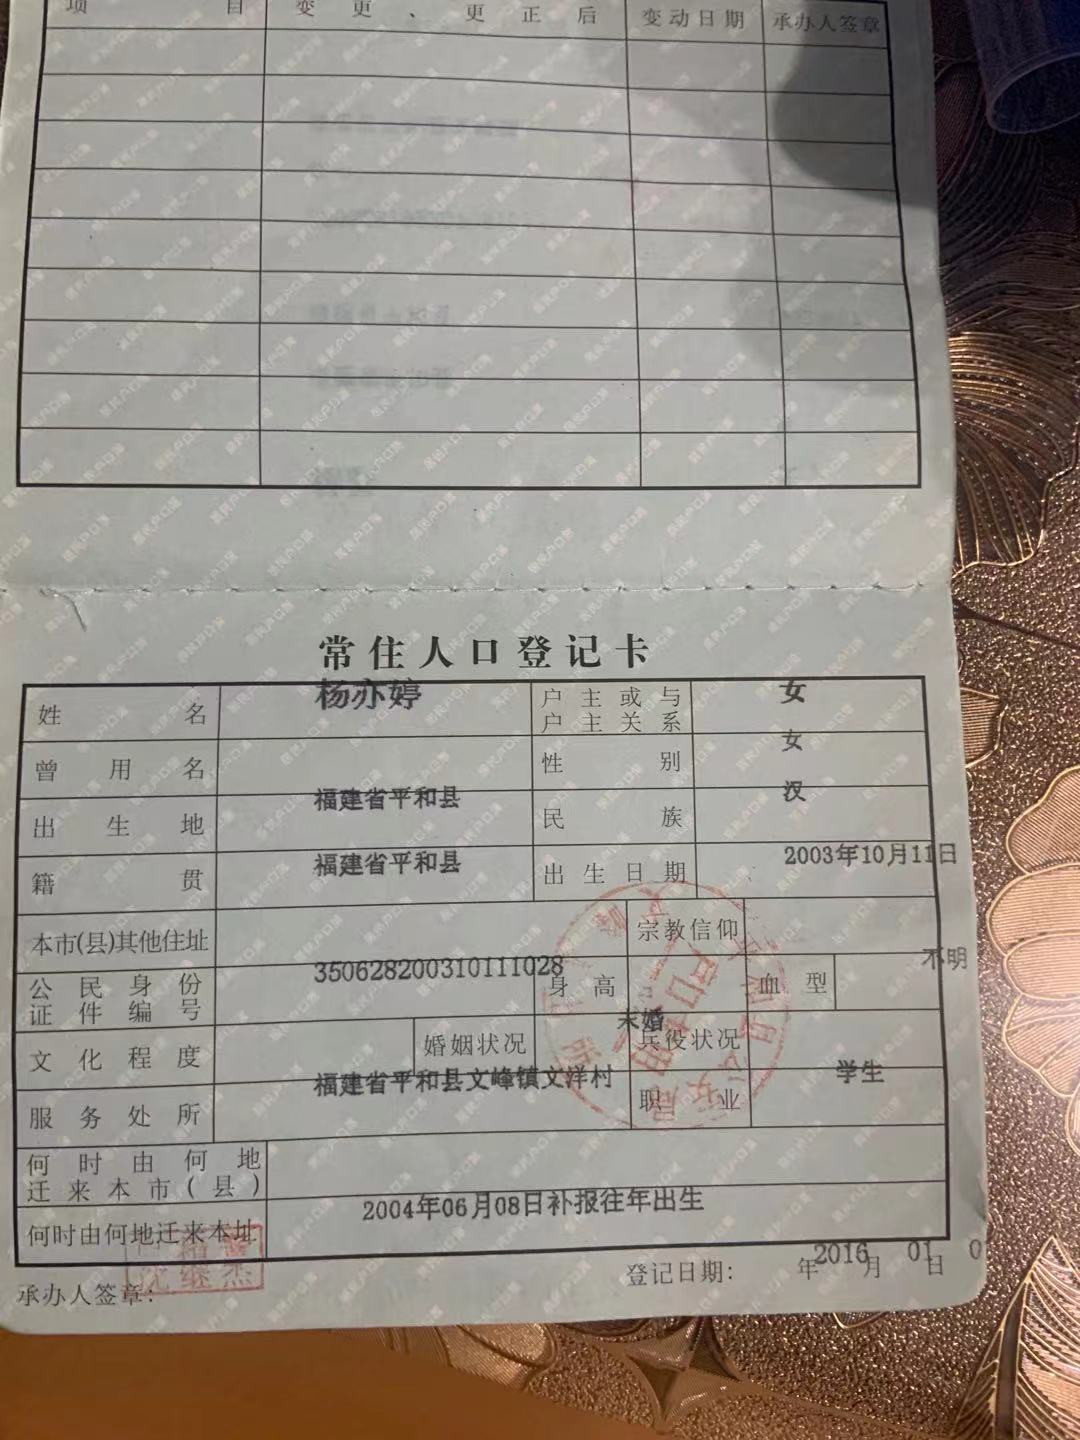 项目 变更、更正后 变动日期 承办人签章
常住人口登记卡
姓名 杨亦婷 户主或与户主关系 女
曾用名 性别 女
出生地 福建省平和县 民族 汉
籍贯 福建省平和县 出生日期 2003年10月11日
本市(县)其他住址 宗教信仰
公民身份证件编号 350628200310111028 身高 血型 不明
文化程度 婚姻状况 未婚 兵役状况
服务处所 福建省平和县文峰镇文洋村 职业 学生
何时由何地迁来本市(县)
何时由何地迁来本址 2004年06月08日补报往年出生
承办人签章: 登记日期: 2016年01月0日